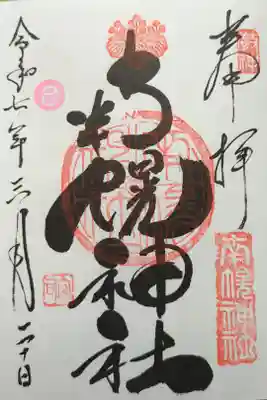 奉拝
南幌神社
南幌神社
令和七年三月二十日
巳